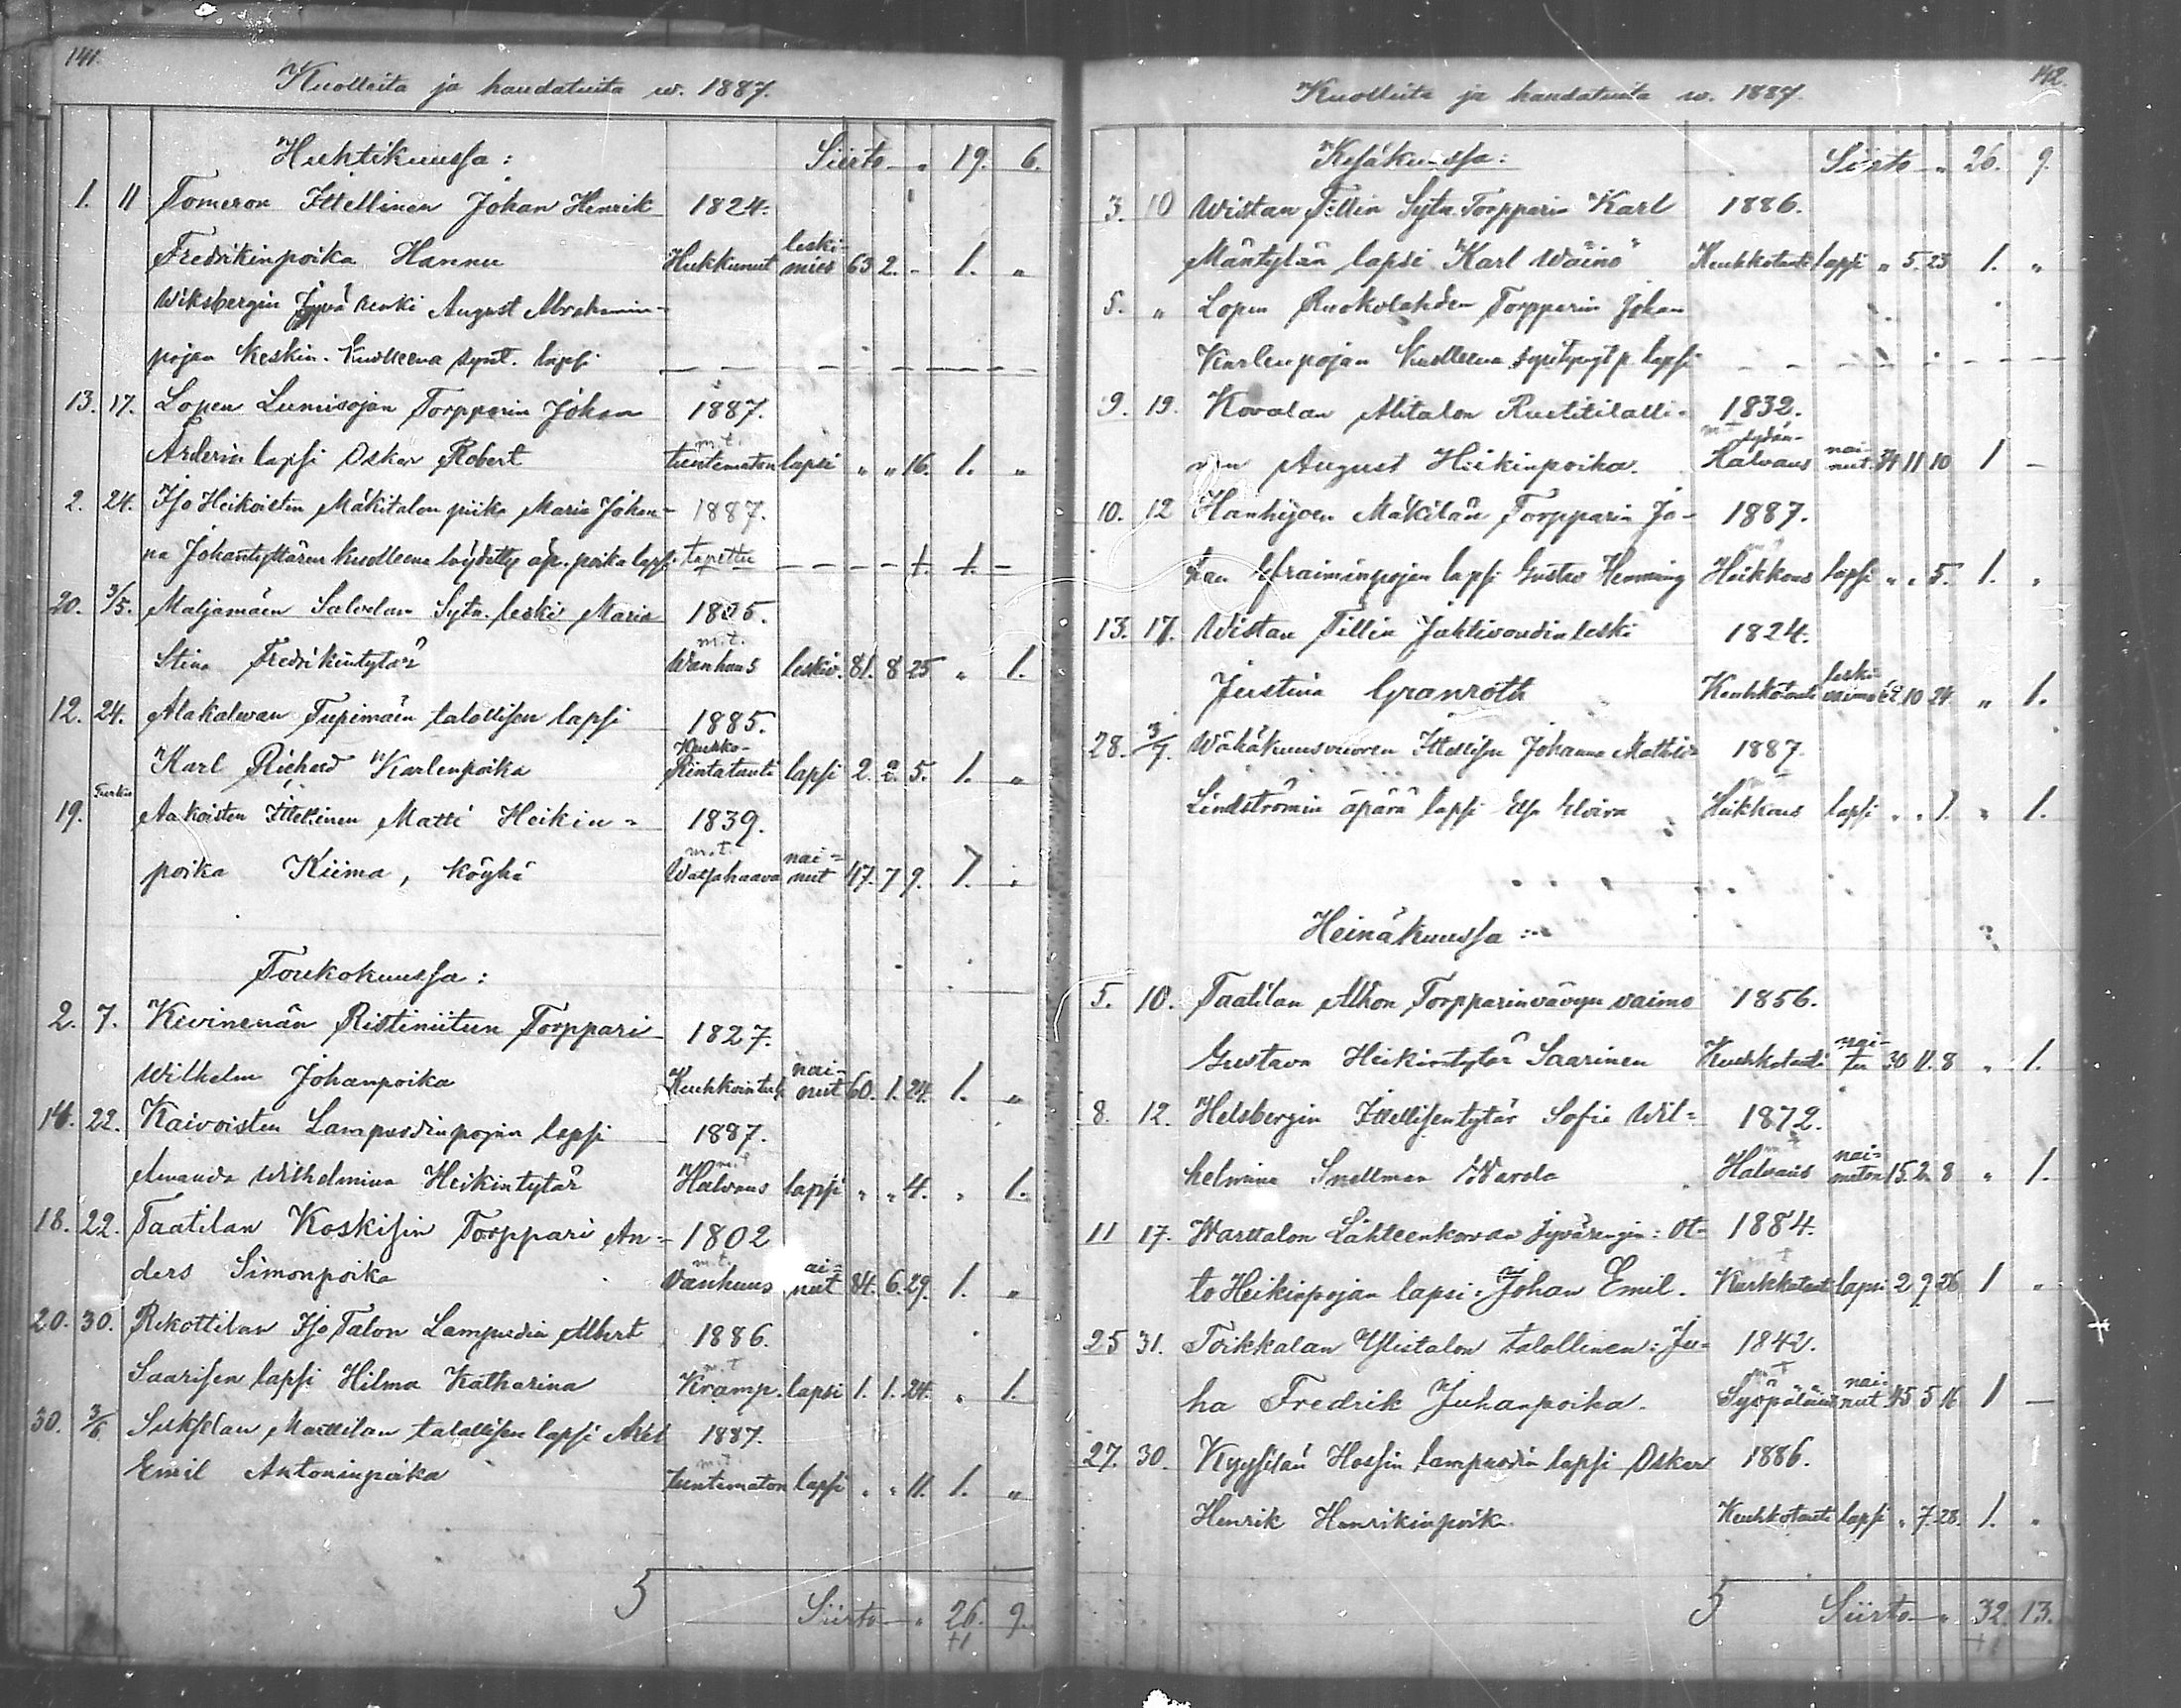 141.
Kuolleita ja haudatuita w. 1887.
Huhtikuussa: Siirto „ 19. 6.
1. 11 Tomeron Ittellinen Johan Henrik 1824.
Fredrikinpoika Hannu Hukkunut leski-mies 63 2. - 1. „
Wiksbergin Jyvä renki August Abrahamin-
pojan Keskin. Kuolleena synt. lapsi — — — — — — —
13. 17. Lopen Lumisojan Torpparin Johan 1887.
Arderin lapsi Oskar Robert m.t. tuntematon lapsi „ „ 16. 1. „
2. 24. Iso Heikoisten Mäkitalon piika Maria Johan- 1887.
na Johantyttären kuolleena löydetty äp. poika lapsi tapettu — — — — 1. 1. —
20. 3/5. Maljamäen Salvelan Sytn. leski Maria 1805.
Stina Fredrikintytär m.t. Wanhuus leskiv. 81. 8 25 „ 1.
12. 24. Alakalwan Tupimäen talollisen lapsi 1885.
Karl Richard Karlenpoika Keuhko-Rintatauti lapsi 2. 2. 5. 1. „
19. Turku Aakoisten Ittellinen Matti Heikin- 1839.
poika Kiima, köyhä m.t. Watsahaava nai-nut 47. 7 9. 1. „
Toukokuussa:
2. 7. Kivinenän Ristiniitun Torppari 1827.
Wilhelm Johanpoika Keuhkointul. nai-nut 60. 1. 24. 1. „
14. 22. Kaivoisten Lampuodinpojan lapsi 1887.
Amanda Wilhelmina Heikintytär m.t. Halvaus lapsi „ „ 4. „ 1.
18. 22. Taatilan Koskisin Torppari An- 1802
ders Simonpoika m.t. Vanhuus ai-nut 84. 6. 29. 1. „
20. 30. Rekottilan Iso Talon Lampuodin Albert 1886.
Saarisen lapsi Hilma Katharina m.t. Kramp. lapsi 1. 1. 24. „ 1.
30. 3/6. Sukselan Marttilan talollisen lapsi Axel 1887.
Emil Antoninpoika m.t. tuntematon lapsi „ „ 11. 1. „
5 Siirto „ 26. 9.
+1
142.
Kuolleita ja haudatuita w. 1887.
Kesäkuussa: Siirto „ 26. 9.
3. 10 Wistan Tillin Sytn. Torpparin Karl 1886.
Mäntylän lapsi "Karl Wäinö" Keuhkotauti lapsi „ 5. 23 1. „
5. „ Lopen Ruokolahden Torpparin Johan
Karlenpojan kuolleena syntynyt p. lapsi — — — — — — —
9. 19. Kovalan Alitalon Rustitilalli- 1832.
nen August Heikinpoika. m.t. sydän-Halvaus nai-nut 54 11 10 1 —
10. 12 Hanhijoen Mäkilän Torpparin Jo- 1887.
han Efraiminpojan lapsi Gustav Henning Heikkous lapsi „ „ 5. 1. „
13. 17. Wistan Tillin Jahtivoudin leski 1824.
Justina Granroth Keuhkotauti leski-vaimo 62 10 24 „ 1.
28. 3/7. Wähäkuusvuoren Ittellisen Johanna Mathilda 1887.
Lindströmin äpärä lapsi Elsa Elvira Heikkous lapsi „ „ 1. „ 1.
Heinäkuussa:
5. 10. Taatilan Alhon Torpparinvävyn vaimo 1856.
Gustava Heikintytär Saarinen Keuhkotauti nai-tu 30 11. 8 „ 1.
8. 12. Helsbergin Ittellisentytär Sofia Wil- 1872.
helmina Snellman m.t. Halvaus nai-maton 15. 2. 8 „ 1.
11 17. Warttalon Lähteenkorvan jyvärengin: Ot- 1884.
to Heikinpojan lapsi: Johan Emil. m.t. Kurkkutauti lapsi 2 9 26 1 „
25 31. Toikkalan Ylistalon talollinen: Ju- 1842.
ha Fredrik Juhanpoika. m.t. Syöpäläis nai-nut 45 5 16 1 —
27. 30. Kyysilän Hossin lampuodin lapsi Oskar 1886.
Henrik Henrikinpoika Keuhkotauti lapsi „ 7. 28. 1. „
5 Siirto „ 32. 13.
+1